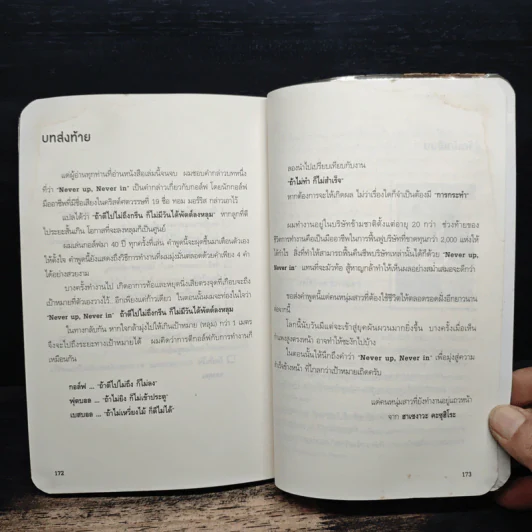 บทส่งท้าย
แด่ผู้อ่านทุกท่านที่อ่านหนังสือเล่มนี้จนจบ ผมชอบคำกล่าวบทหนึ่ง
ที่ว่า "Never up, Never in" เป็นคำกล่าวเกี่ยวกับกอล์ฟ โดยนักกอล์ฟ
มืออาชีพที่มีชื่อเสียงในคริสต์ศตวรรษที่ 19 ชื่อ ทอม มอร์ริส กล่าวเอาไว้
แปลได้ว่า "ถ้าตีไปไม่ถึงกรีน ก็ไม่มีวันได้พัตต์ลงหลุม" หากลูกที่ตี
ไประยะสั้นเกิน โอกาสที่จะลงหลุมก็เป็นศูนย์
ผมเล่นกอล์ฟมา 40 ปี ทุกครั้งที่เล่น คำพูดนี้จะผุดขึ้นมาเตือนตัวเอง
ให้ตั้งใจ คำพูดนี้ยังแสดงถึงวิธีการทำงานที่ผมมุ่งมั่นตลอดด้วยคำเพียง 4 คำ
ได้อย่างสวยงาม
บางครั้งทำงานไป เกิดอาการท้อและหยุดนิ่งเสียตรงจุดที่เกือบจะถึง
เป้าหมายที่ตัวเองวางไว้ อีกเพียงแค่ก้าวเดียว ในตอนนั้นผมจะท่องในใจว่า
"Never up, Never in" ถ้าตีไปไม่ถึงกรีน ก็ไม่มีวันได้พัตต์ลงหลุม
ในทางกลับกัน หากใจกล้ามุ่งไปให้เกินเป้าหมาย (หลุม) กว่า 1 เมตร
จึงจะไปถึงระยะทางเป้าหมายได้ ผมคิดว่าการตีกอล์ฟกับการทำงานก็
เหมือนกัน
กอล์ฟ ... "ถ้าตีไปไม่ถึง ก็ไม่ลง"
ฟุตบอล ... "ถ้าไม่ยิง ก็ไม่เข้าประตู"
เบสบอล ... "ถ้าไม่เหวี่ยงไม้ ก็ตีไม่ได้"
172
ลองนำไปเปรียบเทียบกับงาน
"ถ้าไม่ทำ ก็ไม่สำเร็จ"
หากต้องการจะให้เกิดผล ไม่ว่าเรื่องใดก็จำเป็นต้องมี "การกระทำ"
ผมทำงานอยู่ในบริษัทข้ามชาติตั้งแต่อายุ 20 กว่า ช่วงท้ายของ
ชีวิตการทำงานคือเป็นมืออาชีพในการฟื้นฟูบริษัทที่ขาดทุนกว่า 2,000 แห่งให้
ได้กำไร สิ่งที่ทำให้สามารถฟื้นคืนชีพบริษัทเหล่านั้นได้ก็ด้วย "Never up,
Never in" แทนที่จะมัวท้อ สู้หาญกล้าทำให้เห็นผลอย่างสม่ำเสมอจะดีกว่า
ขอส่งคำพูดนี้แด่คนหนุ่มสาวที่ต้องใช้ชีวิตให้ตลอดรอดฝั่งอีกยาวนาน
โลกนี้นับวันมีแต่จะเข้าสู่ยุคผันผวนมากยิ่งขึ้น บางครั้งเมื่อเห็น
กำแพงสูงตรงหน้า อาจทำให้ชะงักไปบ้าง
ในตอนนั้นให้นึกถึงคำว่า "Never up, Never in" เพื่อมุ่งสู่ความ
ที่ไกลกว่าเป้าหมายเถิดครับ
แด่คนหนุ่มสาวที่ยังทำงานอยู่แถวหน้า
จาก ฮาเซงาวะ คะซุฮิโระ
173